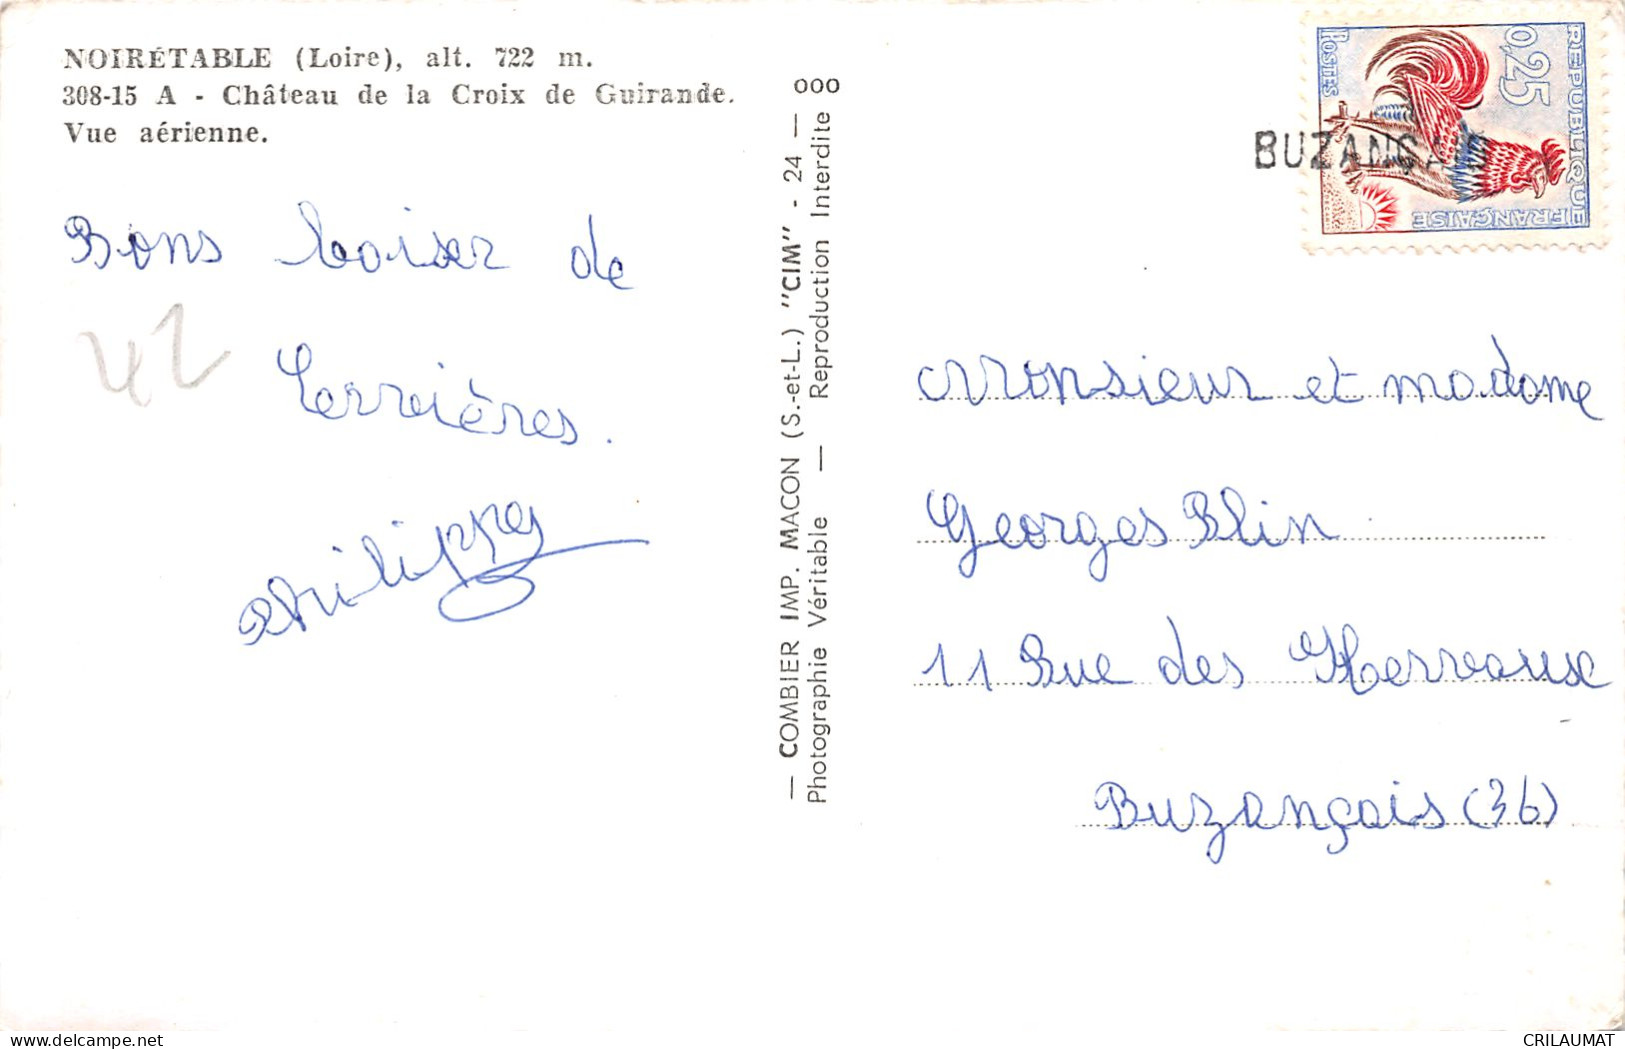 NOIRÉTABLE (Loire), alt. 722 m.
308-15 A - Château de la Croix de Guirande.
Vue aérienne.
Bons boiser de
Cervières.
Philippe
42
— COMBIER IMP. MACON (S.-et-L.) "CIM" - 24 —
Photographie Véritable — Reproduction Interdite
000
BUZANÇAIS
REPUBLIQUE FRANÇAISE
0,25
POSTES
Monsieur et madame
Georges Blin
11 Rue des Hervaux
Buzançais (36)
delcampe.net
CRILAUMAT